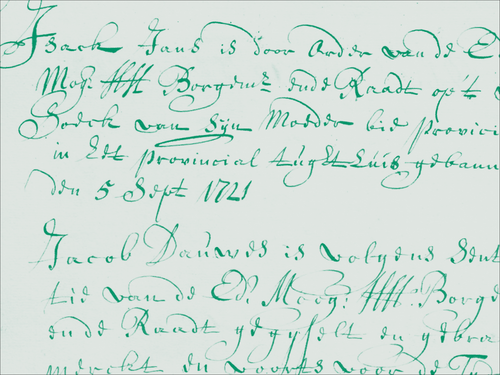 Isack Jans is door order van de E
Mog: HH Borgemrs ende Raadt op't v
Soeck van sijn Moeder bie provici
in het provincial tught huis gebann
den 5 Sept 1721
Jacob Dauwes is volgens sent
tie van de Ed: Moog: HHH: Borge
ende Raadt gegyselt en gebra
merckt en voorts voor de